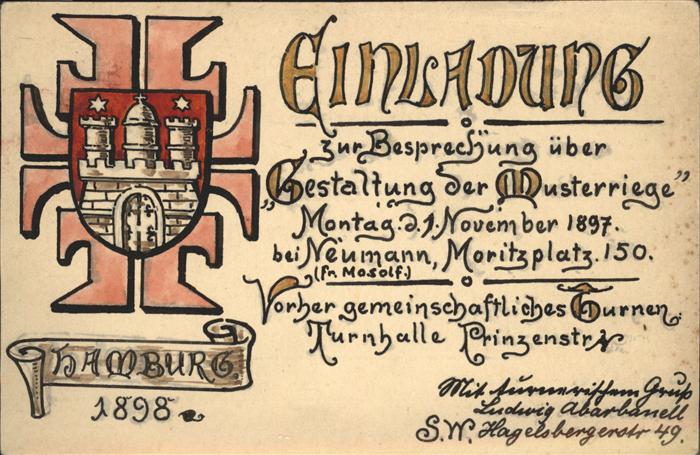 EINLADUNG
zur Besprechung über
„Gestaltung der Musterriege”
Montag.d.1.November 1897.
bei Neumann, Moritzplatz.150.
(fr. Mosolf.)
Vorher gemeinschaftliches Turnen.
Turnhalle Prinzenstr.
HAMBURG.
1898.
Mit turnerischem Gruß
Ludwig Abarbanell
S.W. Hagelsbergerstr 49.